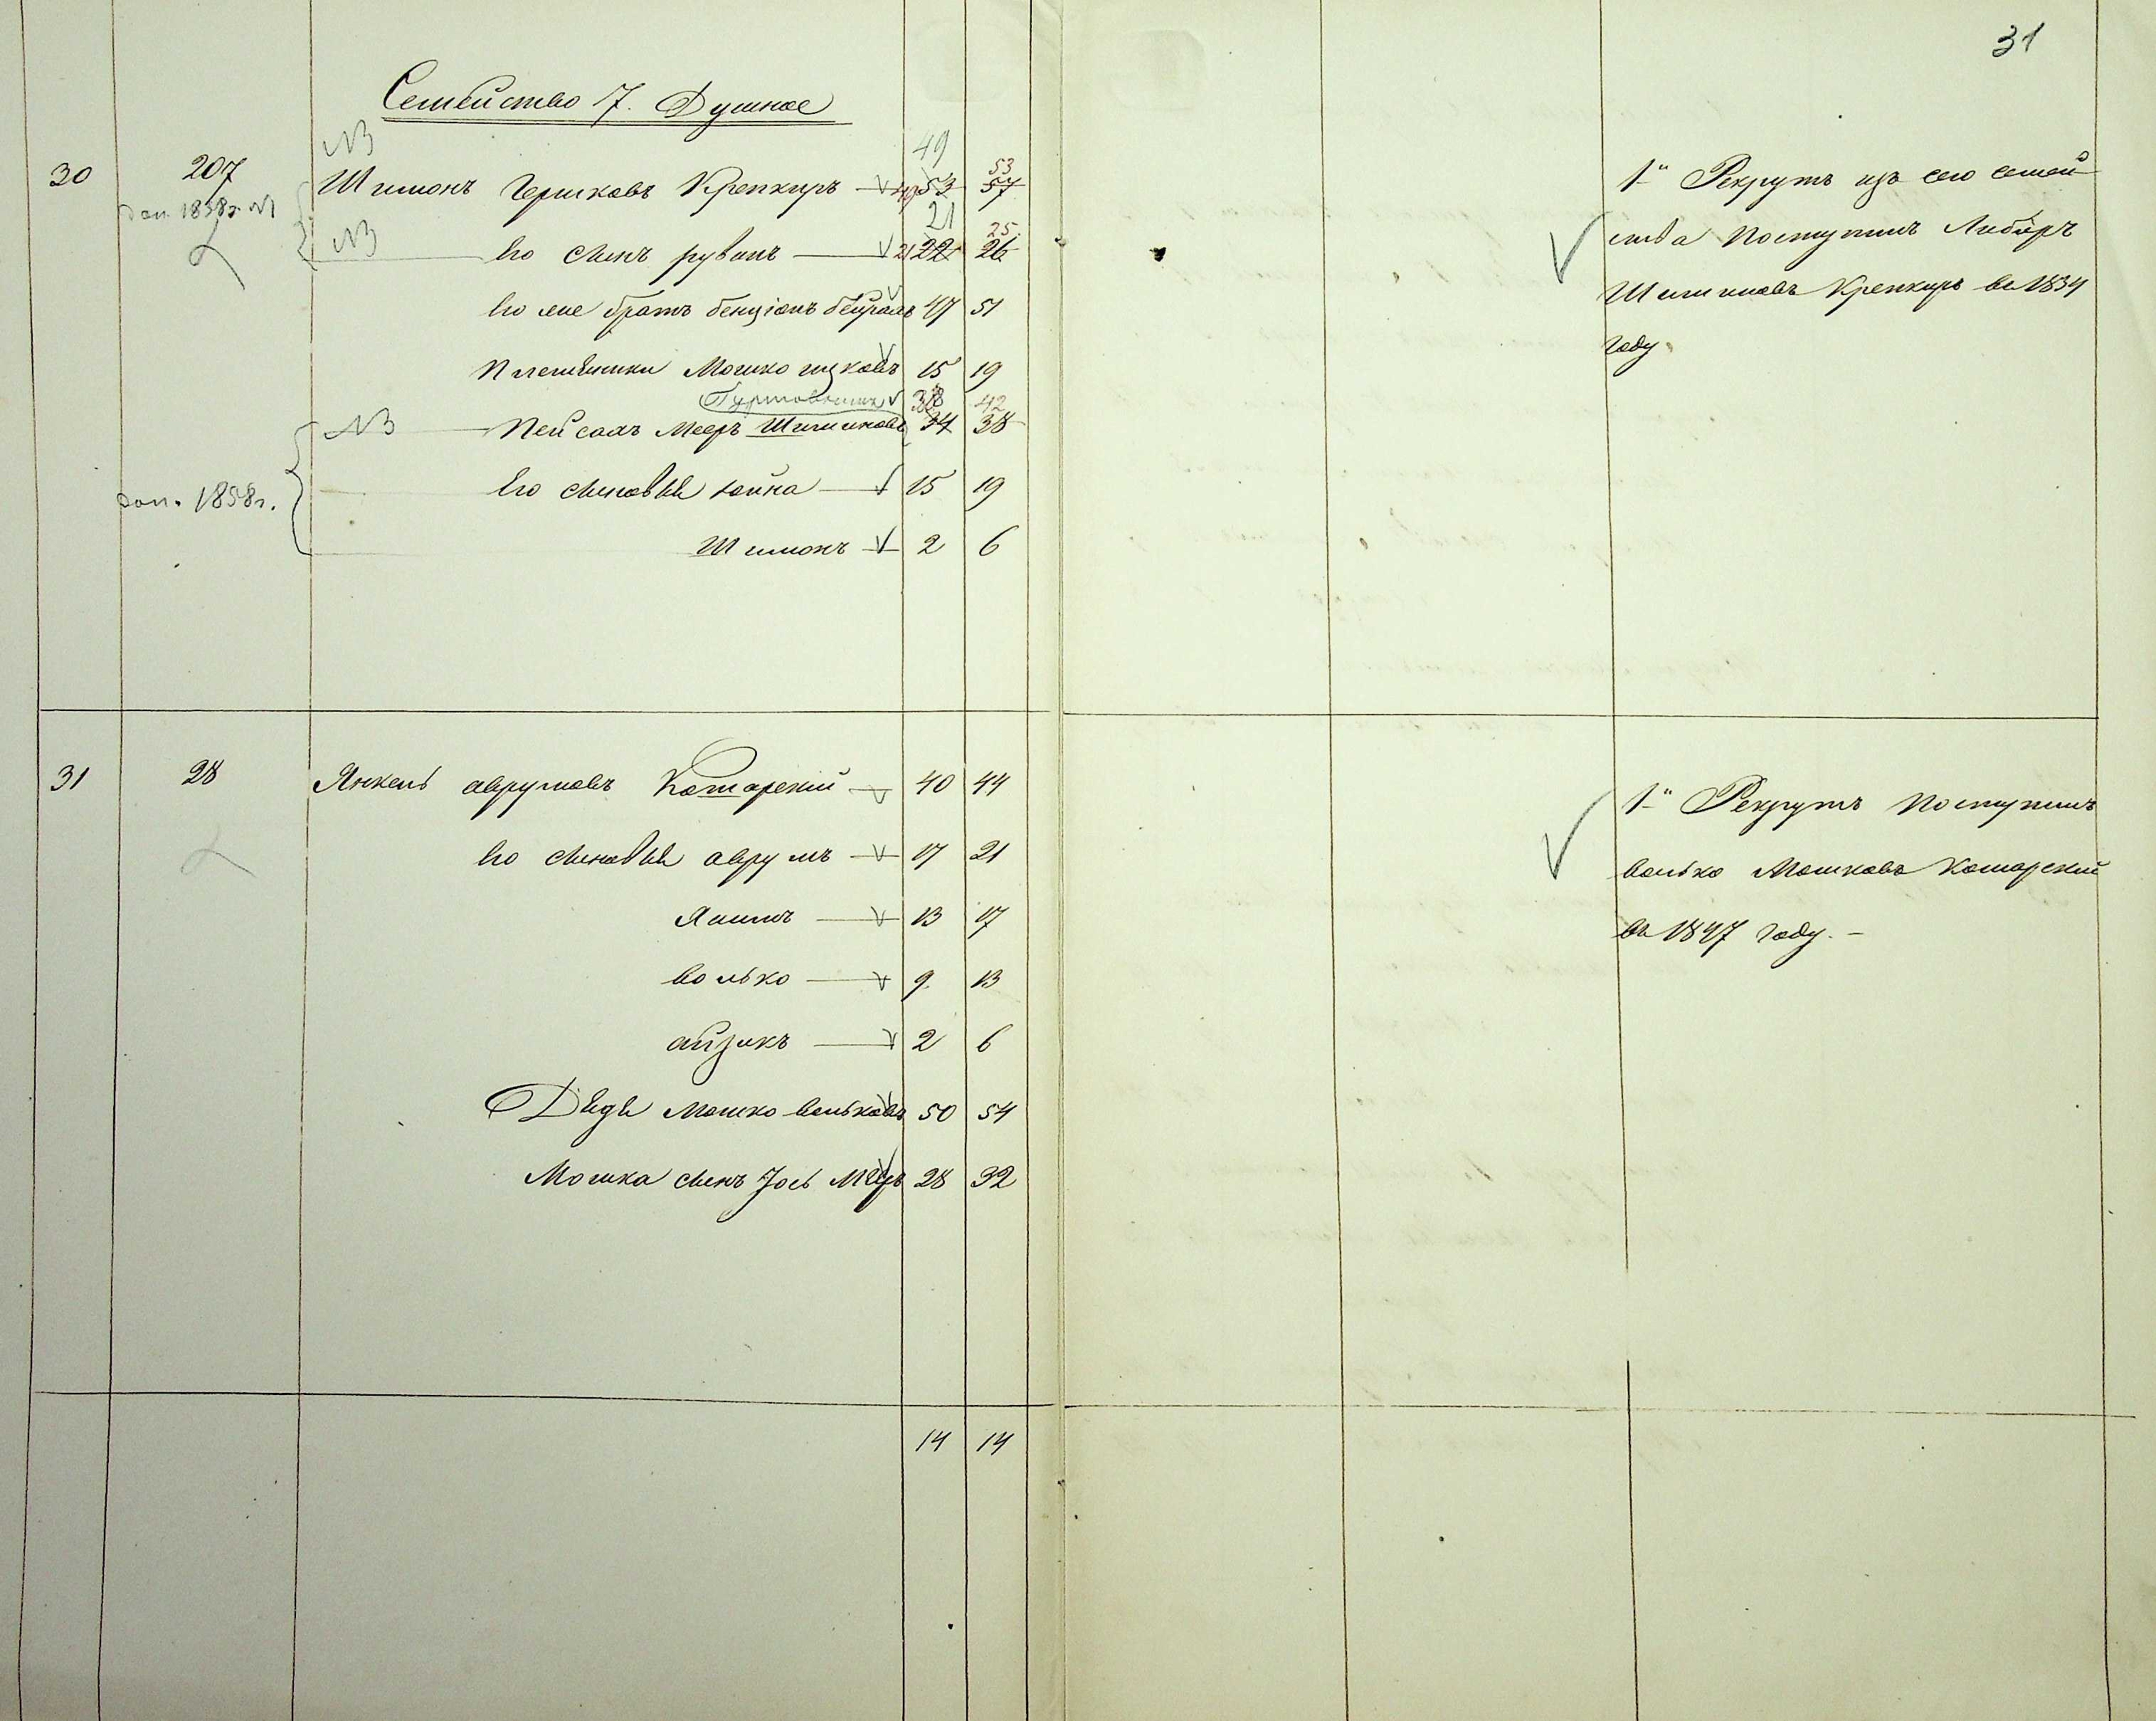 31
Семейство 7. Душное
NB 49
30 207 Шимонъ Гершковъ Крепкиръ 49 53 57 53
доп. 1858 г. N1 21
NB Его сынъ рувинъ 21 22 26 25
Его же братъ бенціонъ 47 51
Племянники Мошко ицковъ 15 19
38 42
NB Пейсахъ Мееръ Шимшиновъ 34 38
доп. 1858 г. Его сыновья хаина 15 19
Шимонъ 2 6
1й Рекрутъ изъ сего семей
ства Поступилъ Либеръ
Крепкиръ въ 1854
году
31 28 Янкель аврумовъ Котарскій 40 44
Его сыновья аврумъ 17 21
13 17
волько 9 13
айзикъ 2 6
Дядя Мошко вольковъ 50 54
Мошка сынъ Іось 28 32
1й Рекрутъ Поступилъ
волько Мошковъ Котарскій
въ 1847 году. –
14 14